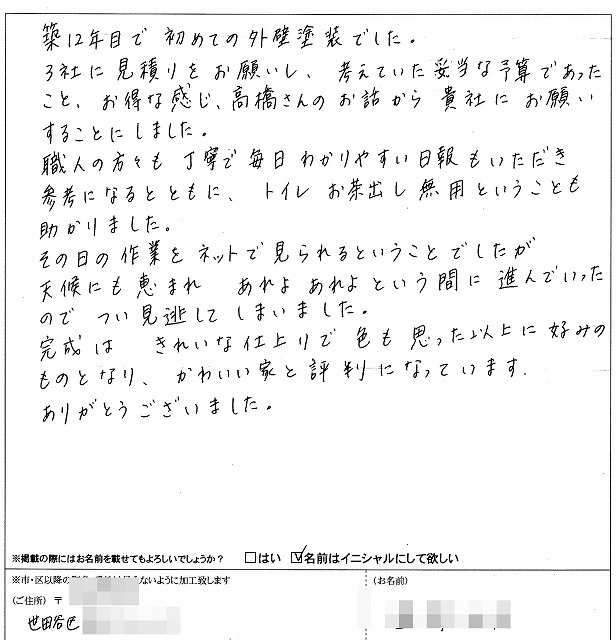 築12年目で 初めての外壁塗装でした。
3社に見積りをお願いし、考えていた妥当な予算であった
こと、お得な感じ、高橋さんのお話から 貴社に お願い
することにしました。
職人の方々も 丁寧で 毎日 わかりやすい日報もいただき
参考になるとともに、トイレ お茶出し無用ということも
助かりました。
その日の作業を ネットで見られるということでしたが
天候にも 恵まれ あれよ あれよという間に 進んでいった
ので つい見逃して しまいました。
完成は きれいな仕上りで 色も 思った以上に好みの
ものとなり、かわいい家と評判になっています.
ありがとうございました。
※掲載の際にはお名前を載せてもよろしいでしょうか？ □はい ☑名前はイニシャルにして欲しい
※市・区以降の ないように加工致します
(お名前)
(ご住所) 〒
世田谷区